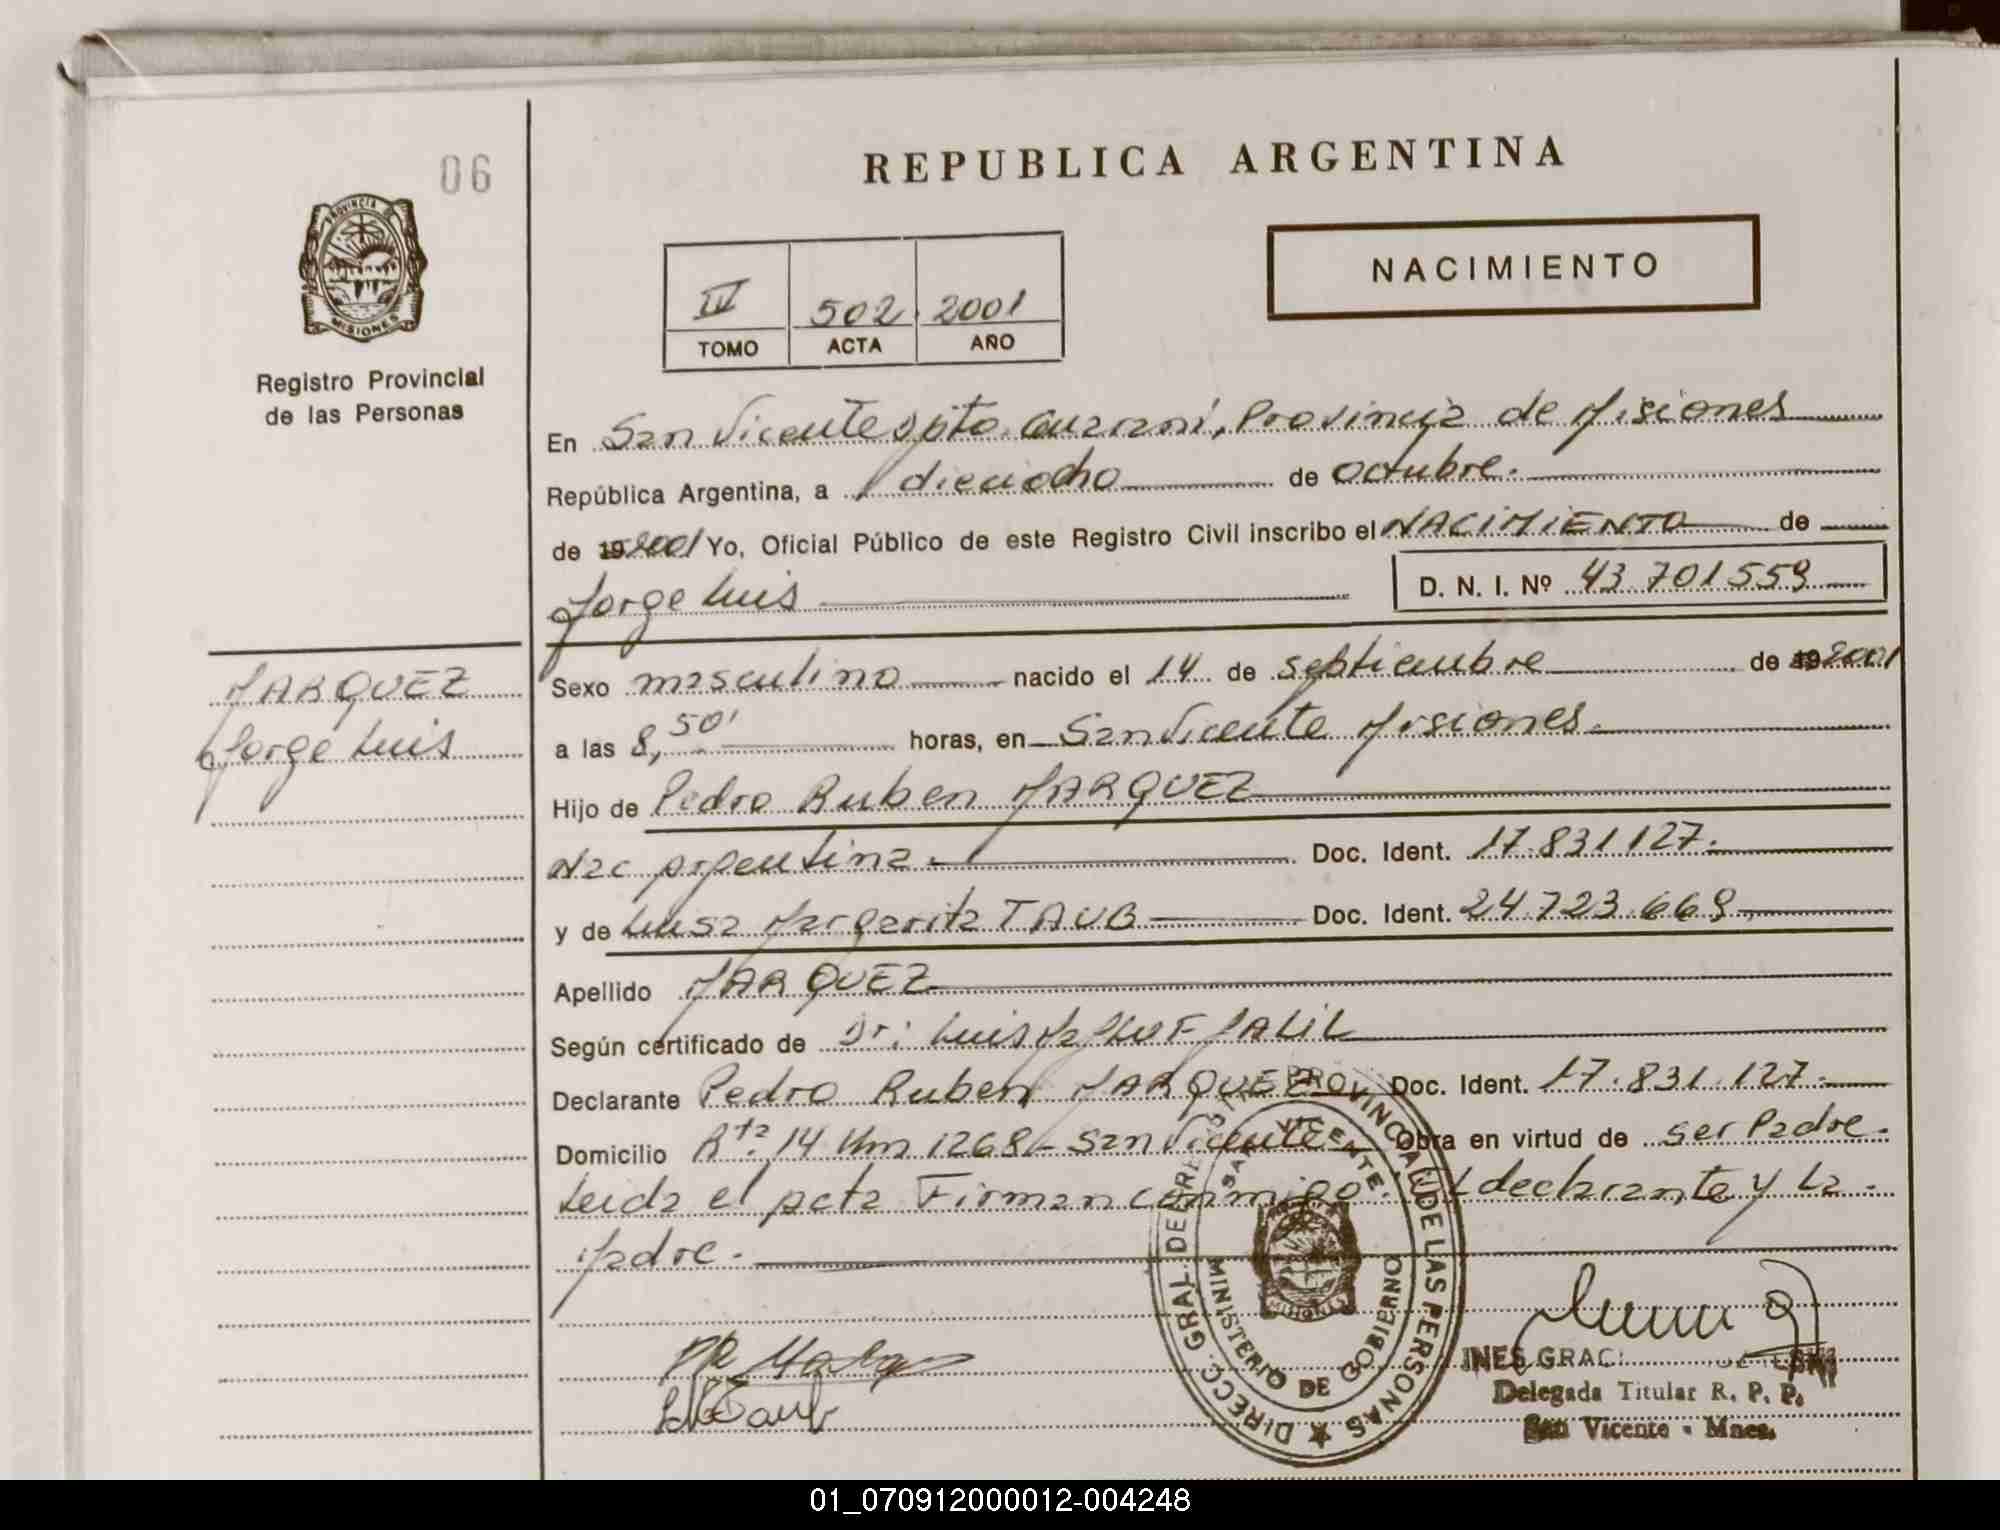 06
REPUBLICA ARGENTINA
PROVINCIA DE
MISIONES
NACIMIENTO
IV 502 2001
TOMO ACTA AÑO
Registro Provincial
de las Personas
En San Vicente Dpto. Guaraní, Provincia de Misiones
República Argentina, a dieciocho de octubre.
de 19 2001 Yo, Oficial Público de este Registro Civil inscribo el NACIMIENTO de
Jorge Luis D. N. I. Nº 43.701559
MARQUEZ
Jorge Luis
Sexo masculino nacido el 14 de septiembre de 19 2001
a las 8,50' horas, en San Vicente Misiones.
Hijo de Pedro Ruben MARQUEZ
Nac argentina. Doc. Ident. 17.831.127.
y de Luisa Margarita TAUB Doc. Ident. 24.723.669
Apellido MARQUEZ
Según certificado de Dr: Luis JALIL
Declarante Pedro Ruben MARQUEZ Doc. Ident. 17.831.127.
Domicilio Rta. 14 Km 1268 - San Vicente Obra en virtud de ser Padre.
Leida el acta Firman conmigo. El declarante y La
Madre.
DIRECC. GRAL. DE REGISTRO PROVINCIAL DE LAS PERSONAS
SAN VICENTE
MINISTERIO DE GOBIERNO
MISIONES
LMTaub
INES GRAC
Delegada Titular R. P. P.
San Vicente - Mnes.
01_070912000012-004248